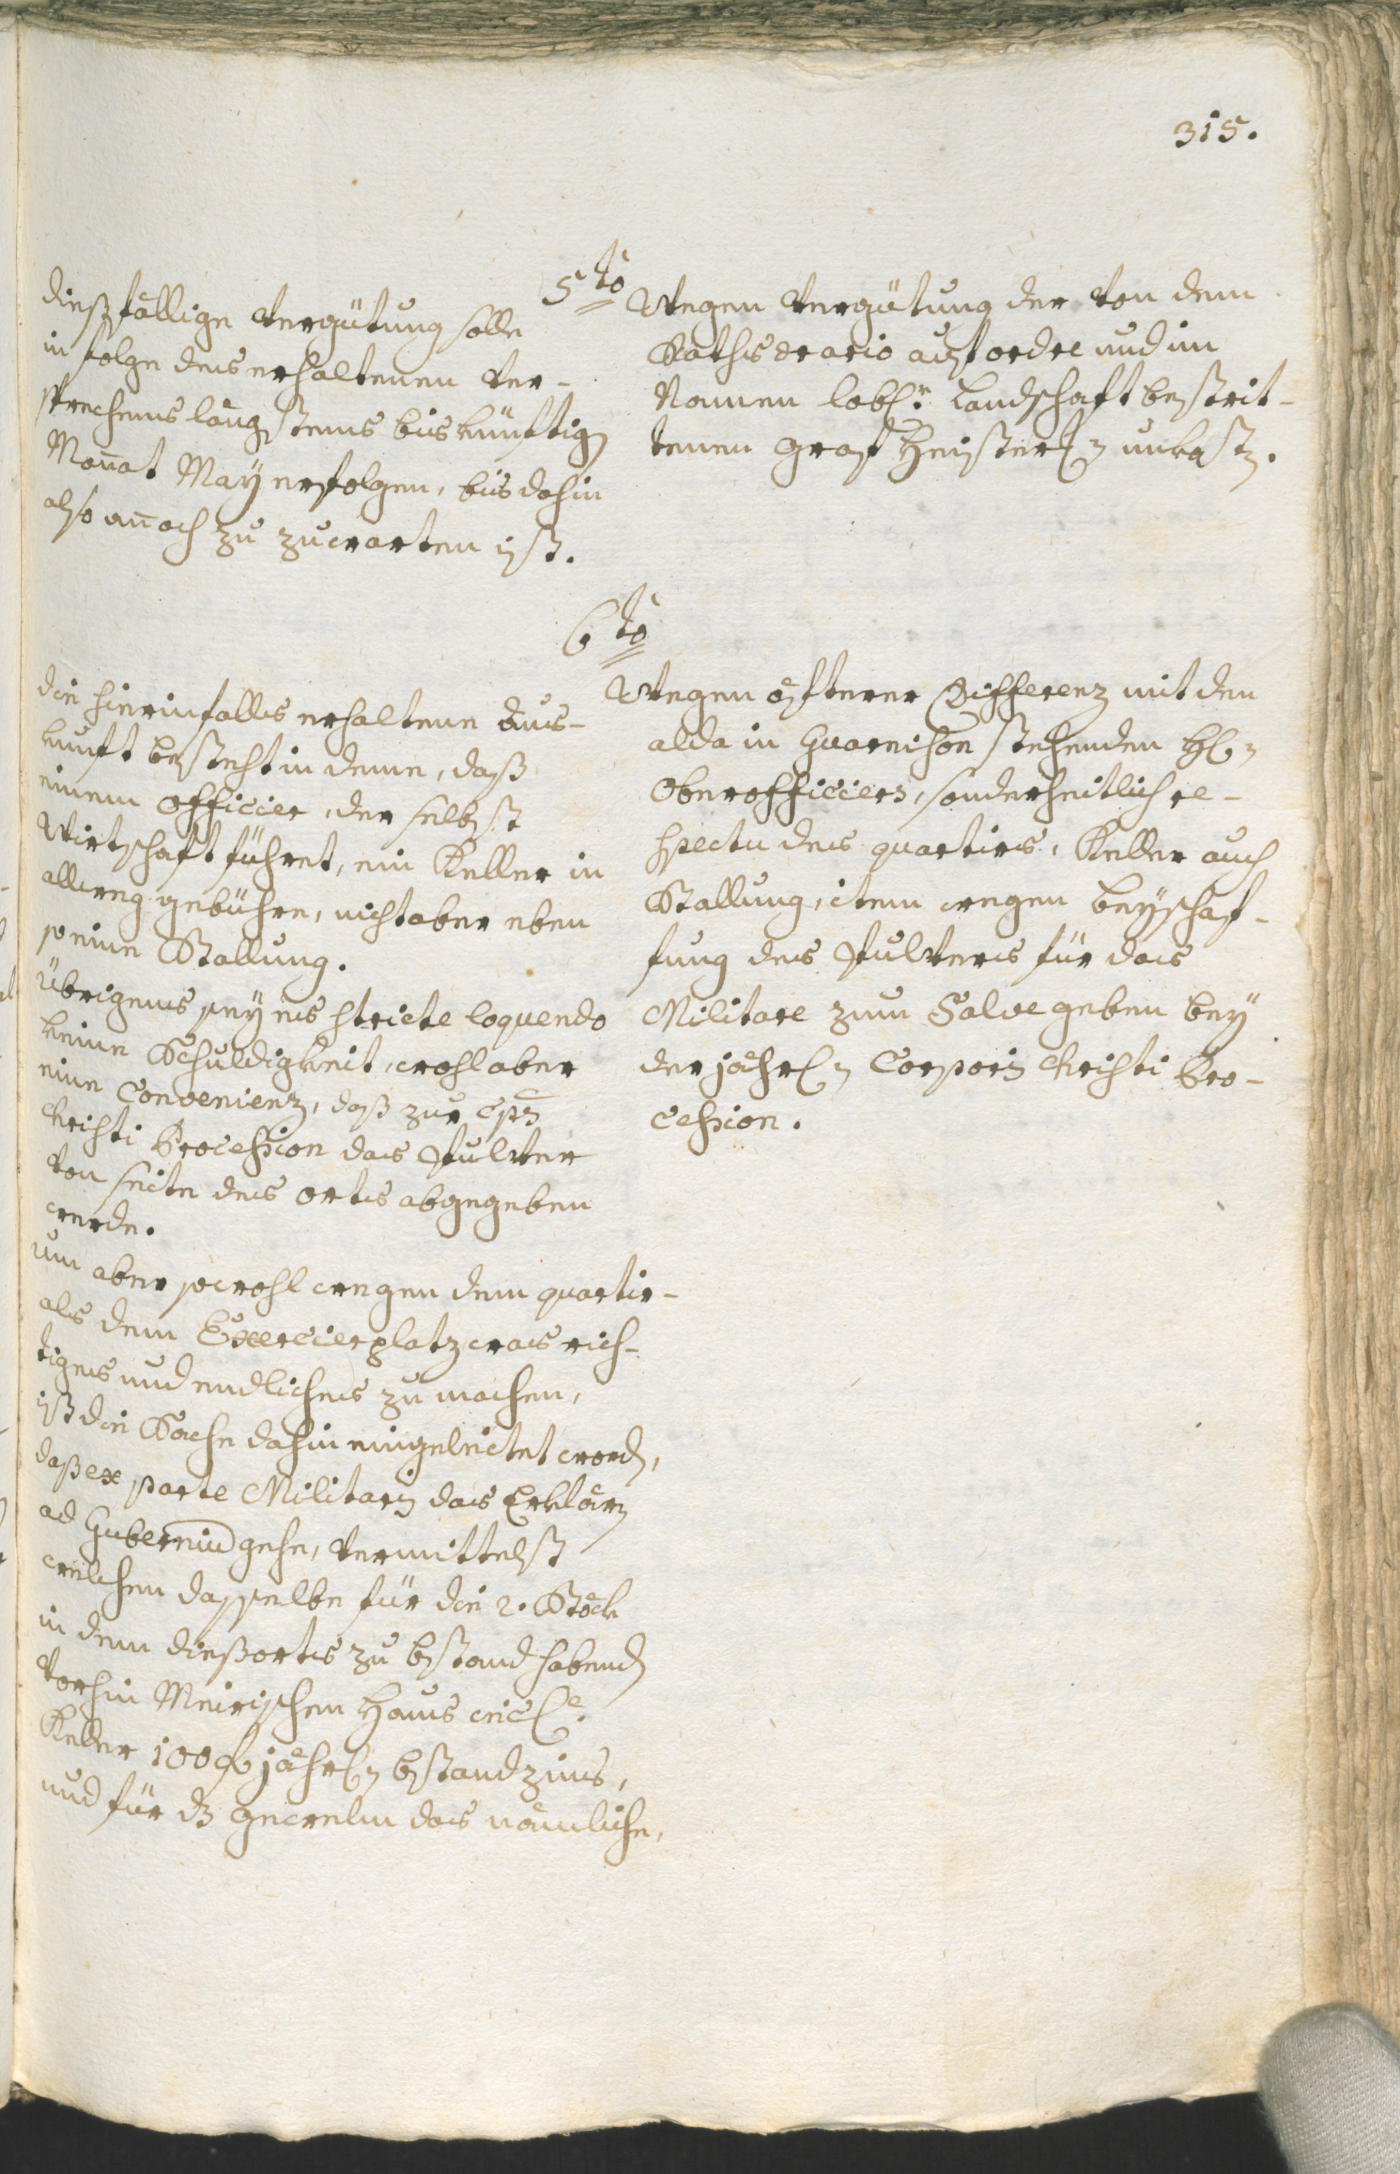 315.
5to
Wegen Vergütung der von dem
Raths aerario auf ordre und im
Namen lobl:r Landschaft bestrit-
tenen Graf Heister unköstn.
dießfällige Vergütung solle
in folge des erhaltenen Ver-
sprechens längstens bis künftig
Monat May erfolgen, bis dahin
also annoch zu zuwarten ist.
6to
Wegen öfterer Differenz mit den
alda in Guarnison stehenden H:
Oberofficiers, sonderheitlich re-
spectu des quartirs, Keller auch
Stallung, item wegen beyschaf-
fung des Pulvers für das
Militare zum Salve geben bey
der jährl: Corporis Christi Pro-
cession.
die hierinfalls erhaltene Aus-
kunft besteht in deme, daß
einem Officier, der selbst
Wirtschaft führet, ein Keller in
allweg gebühre, nicht aber eben
so eine Stallung.
Übrigens sey es stricte loquendo
keine Schuldigkeit, wohl aber
eine Convenienz, daß zur Cps
Christi Procession das Pulver
von seite des orts abgegeben
werde.
um aber sowohl wegen dem quartir-
als dem Exercierplatz was rich-
tiges und endliches zu machen,
ist die Sache dahin eingeleitet word,
daß ex parte Militaris das Erklärn
ad Gubernium gehe, vermittelst
welchen dasselbe für die 2. Stöck
in dem dießorts zu bstand habend
vorhin Meirischen Haus
Keller 100 f jährl: bstandzins,
und für dz gewelm das nämliche,